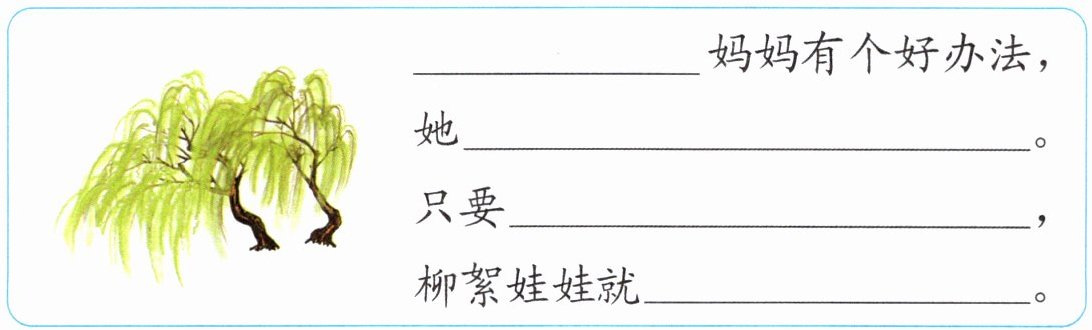 ____________妈妈有个好办法，
她________________________。
只要______________________，
柳絮娃娃就________________。